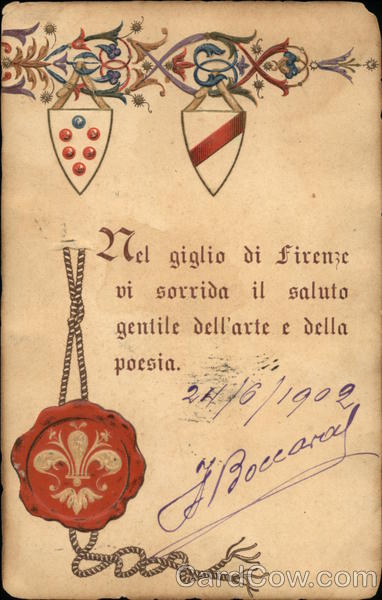 Nel giglio di Firenze
vi sorrida il saluto
gentile dell'arte e della
poesia.
24/6/1902
J Boccara
CardCow.com